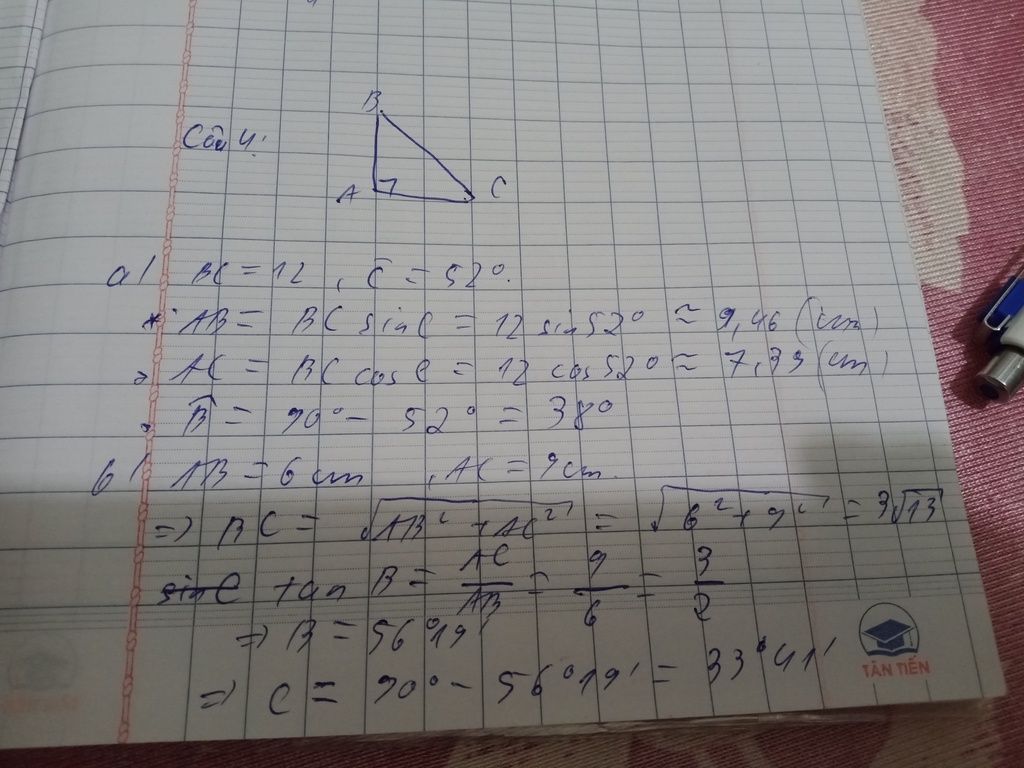 B
Câu 4:
A C
a/ BC = 12 , C = 52°.
* AB = BC sin C = 12 sin 52° ≈ 9,46 (cm)
AC = BC cos C = 12 cos 52° ≈ 7,39 (cm)
B̂ = 90° - 52° = 38°
b/ AB = 6 cm , AC = 9 cm.
=> BC = √AB² + AC² = √6² + 9² = 3√13
sin C tan B = AC/AB = 9/6 = 3/2
=> B = 56°19'
=> C = 90° - 56°19' = 33°41'
TÂN TIẾN